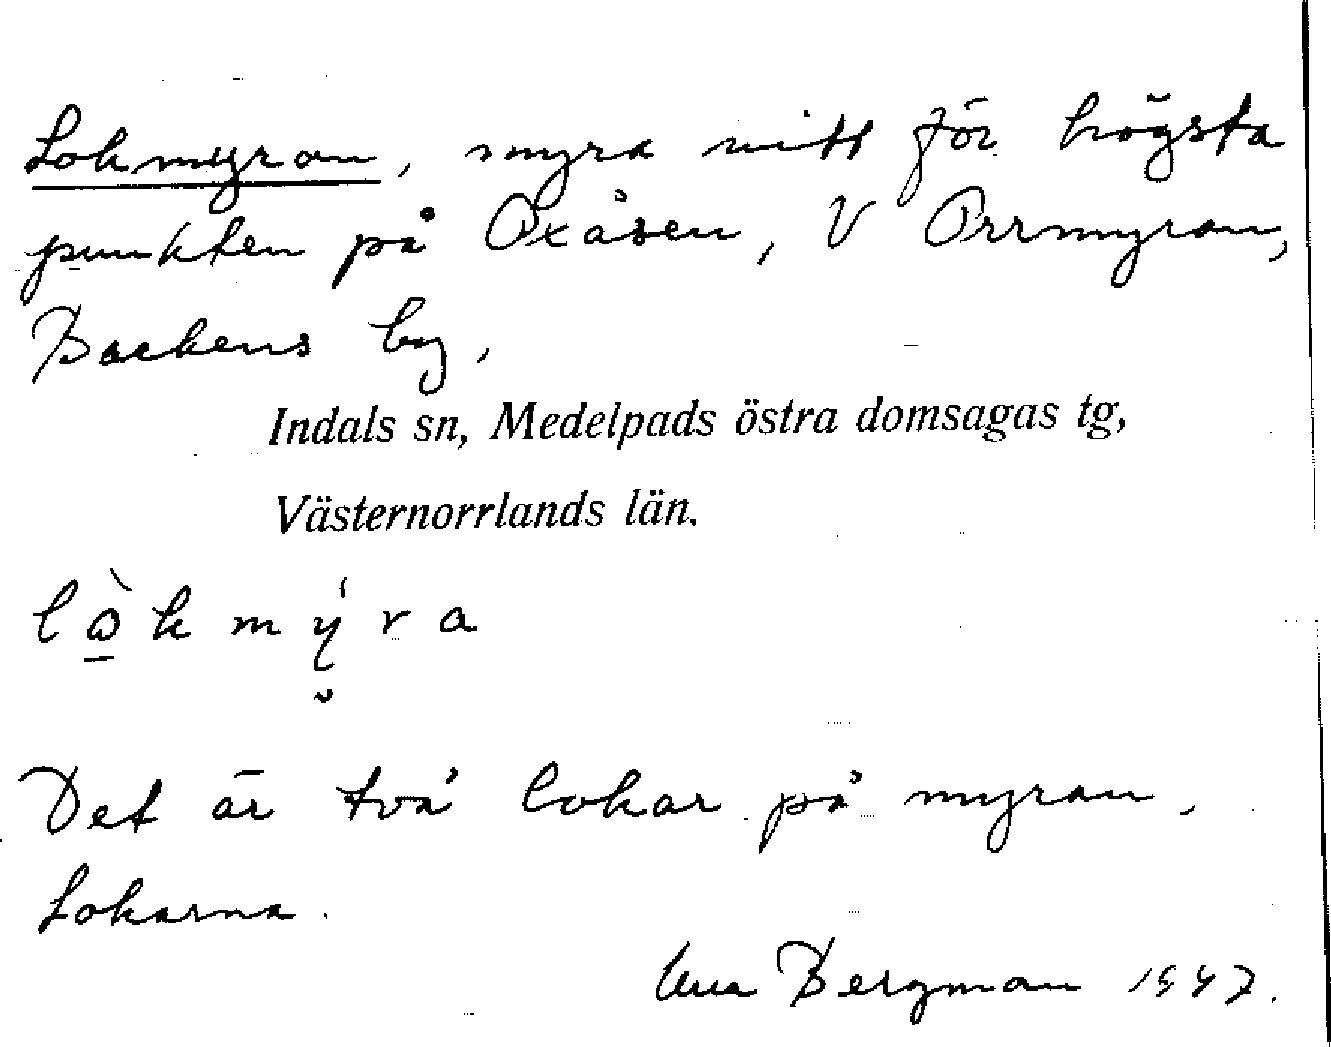 Lokmyran, myra mitt för högsta
punkten på Oxåsen, V Orrmyran,
Backens by,
Indals sn, Medelpads östra domsagas tg,
Västernorrlands län.
Det är två lokar på myran,
Lokarna.
Bergman 1947.